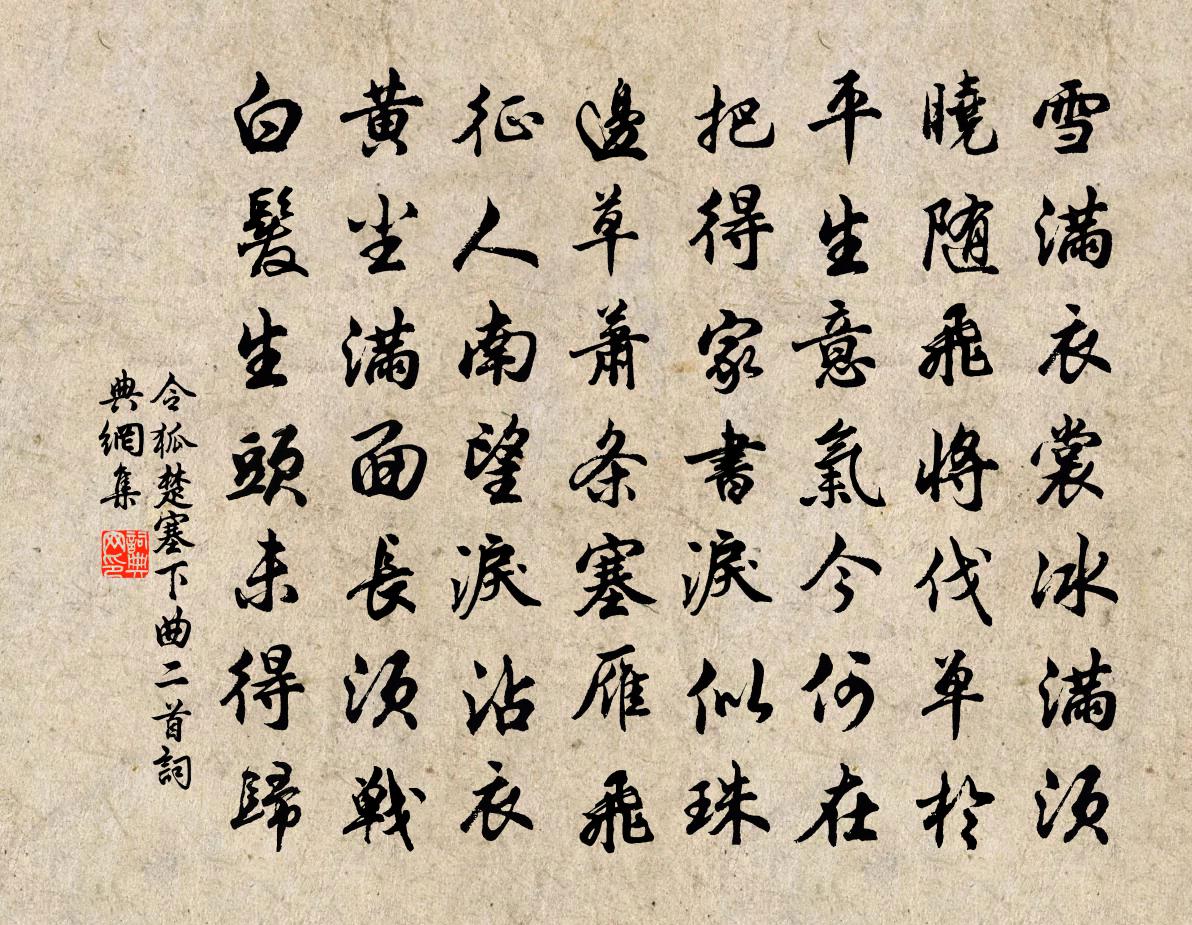 雪滿衣裳冰滿須
曉随飛將伐單於
平生意氣今何在
把得家書淚似珠
邊草蕭条塞雁飛
征人南望淚沾衣
黄尘滿面長須戰
白髮生頭未得歸
令狐楚塞下曲二首詞
典網集
詞典
网印